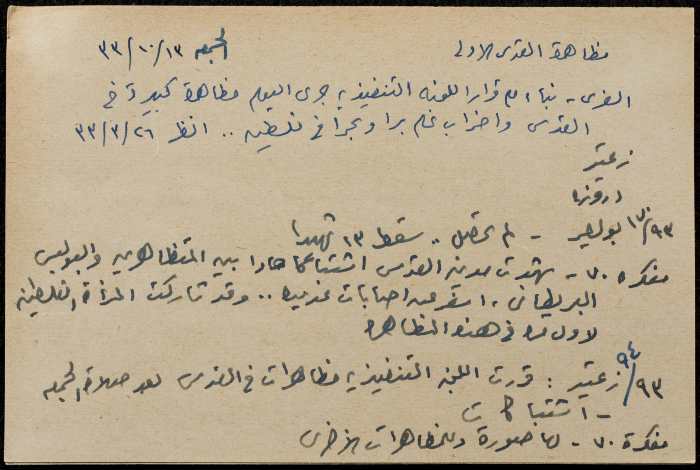 مظاهرة القدس الاولى الجمعه ٣٣/١٠/١٣
القدس - بناء على قرار اللجنه التنفيذيه جرى اليوم مظاهرة كبيرة في
القدس واضراب عام برا وبحرا في فلسطين .. انظر ٣٣/٣/٢٦
زعيتر
دروزه
بولص - لم تحصل .. سقط ١٣ شهيدا
مفكرة ٧٠ - شهدت مدينة القدس اشتباكا حادا بين المتظاهرين والبوليس
البريطاني ، اسفر عن اصابات عديده .. وقد شاركت المرأة الفلسطينيه
لاول مره في هذه المظاهره
٩٣/٩٤ زعيتر : قررت اللجنه التنفيذيه مظاهرات في القدس بعد صلاة الجمعه
- اشتباكات
مفكرة ٧٠ - لها صورة وللمظاهرات الاخرى